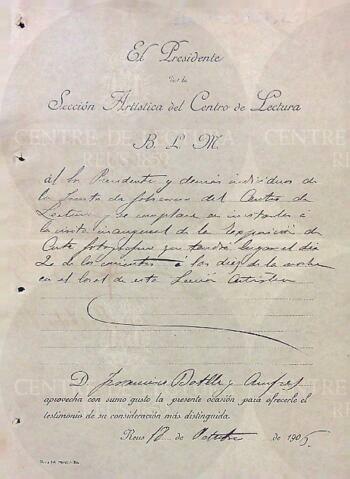 El Presidente
de la
Sección Artística del Centro de Lectura
B. L. M.
al Sr. Presidente y demás individuos de
la Junta de gobierno del Centro de
Lectura y se complace en invitarles á
la visita inaugural de la exposición de
que tendrá lugar el día
2 de los corrientes á las diez de la noche
en el local de esta Sección Artística
D. Francisco Batlle y
aprovecha con sumo gusto la presente ocasión para ofrecerle el
testimonio de su consideración más distinguida.
Reus 12 de Octubre de 1905
CENTRE DE LECTURA
REUS 1859